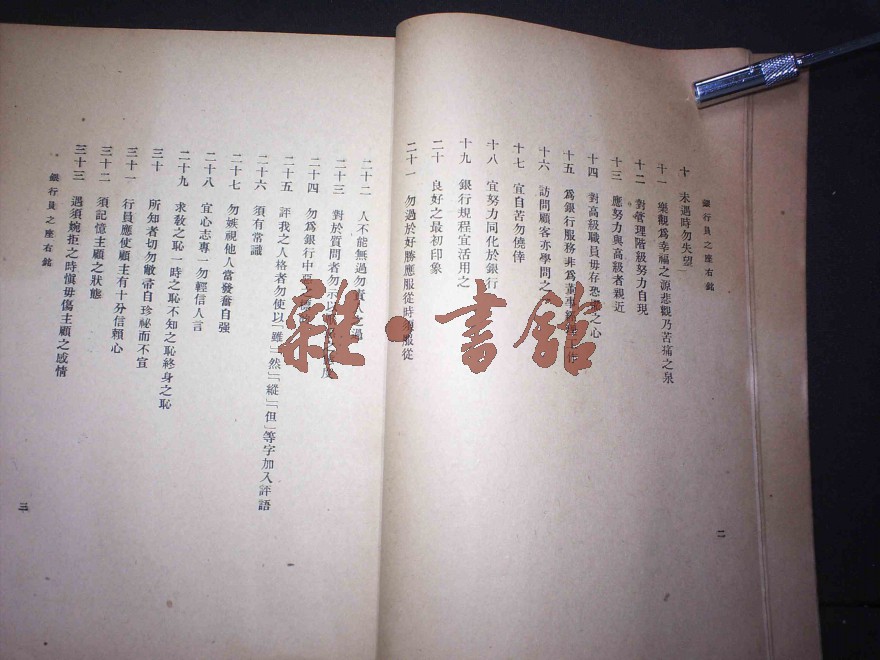 銀行員之座右銘
十 未遇時勿失望
十一 樂觀爲幸福之源悲觀乃苦痛之泉
十二 對管理階級努力自現
十三 應努力與高級者親近
十四 對高級職員毋存恐 之心
十五 爲銀行服務非爲董事
十六 訪問顧客亦學問之
十七 宜自苦勿僥倖
十八 宜努力同化於銀行
十九 銀行規程宜活用之
二十 良好之最初印象
二十一 勿過於好勝應服從時須服從
二
二十二 人不能無過勿責人之過
二十三 對於質問者勿示以
二十四 勿爲銀行中
二十五 評我之人格者勿使以「雖」「然」「縱」「但」等字加入評語
二十六 須有常識
二十七 勿嫉視他人當發奮自强
二十八 宜心志專一勿輕信人言
二十九 求敎之恥一時之恥不知之恥終身之恥
三十 所知者切勿敝帚自珍祕而不宣
三十一 行員應使顧主有十分信賴心
三十二 須記憶主顧之狀態
三十三 遇須婉拒之時愼毋傷主顧之感情
銀行員之座右銘
三
雜·書館